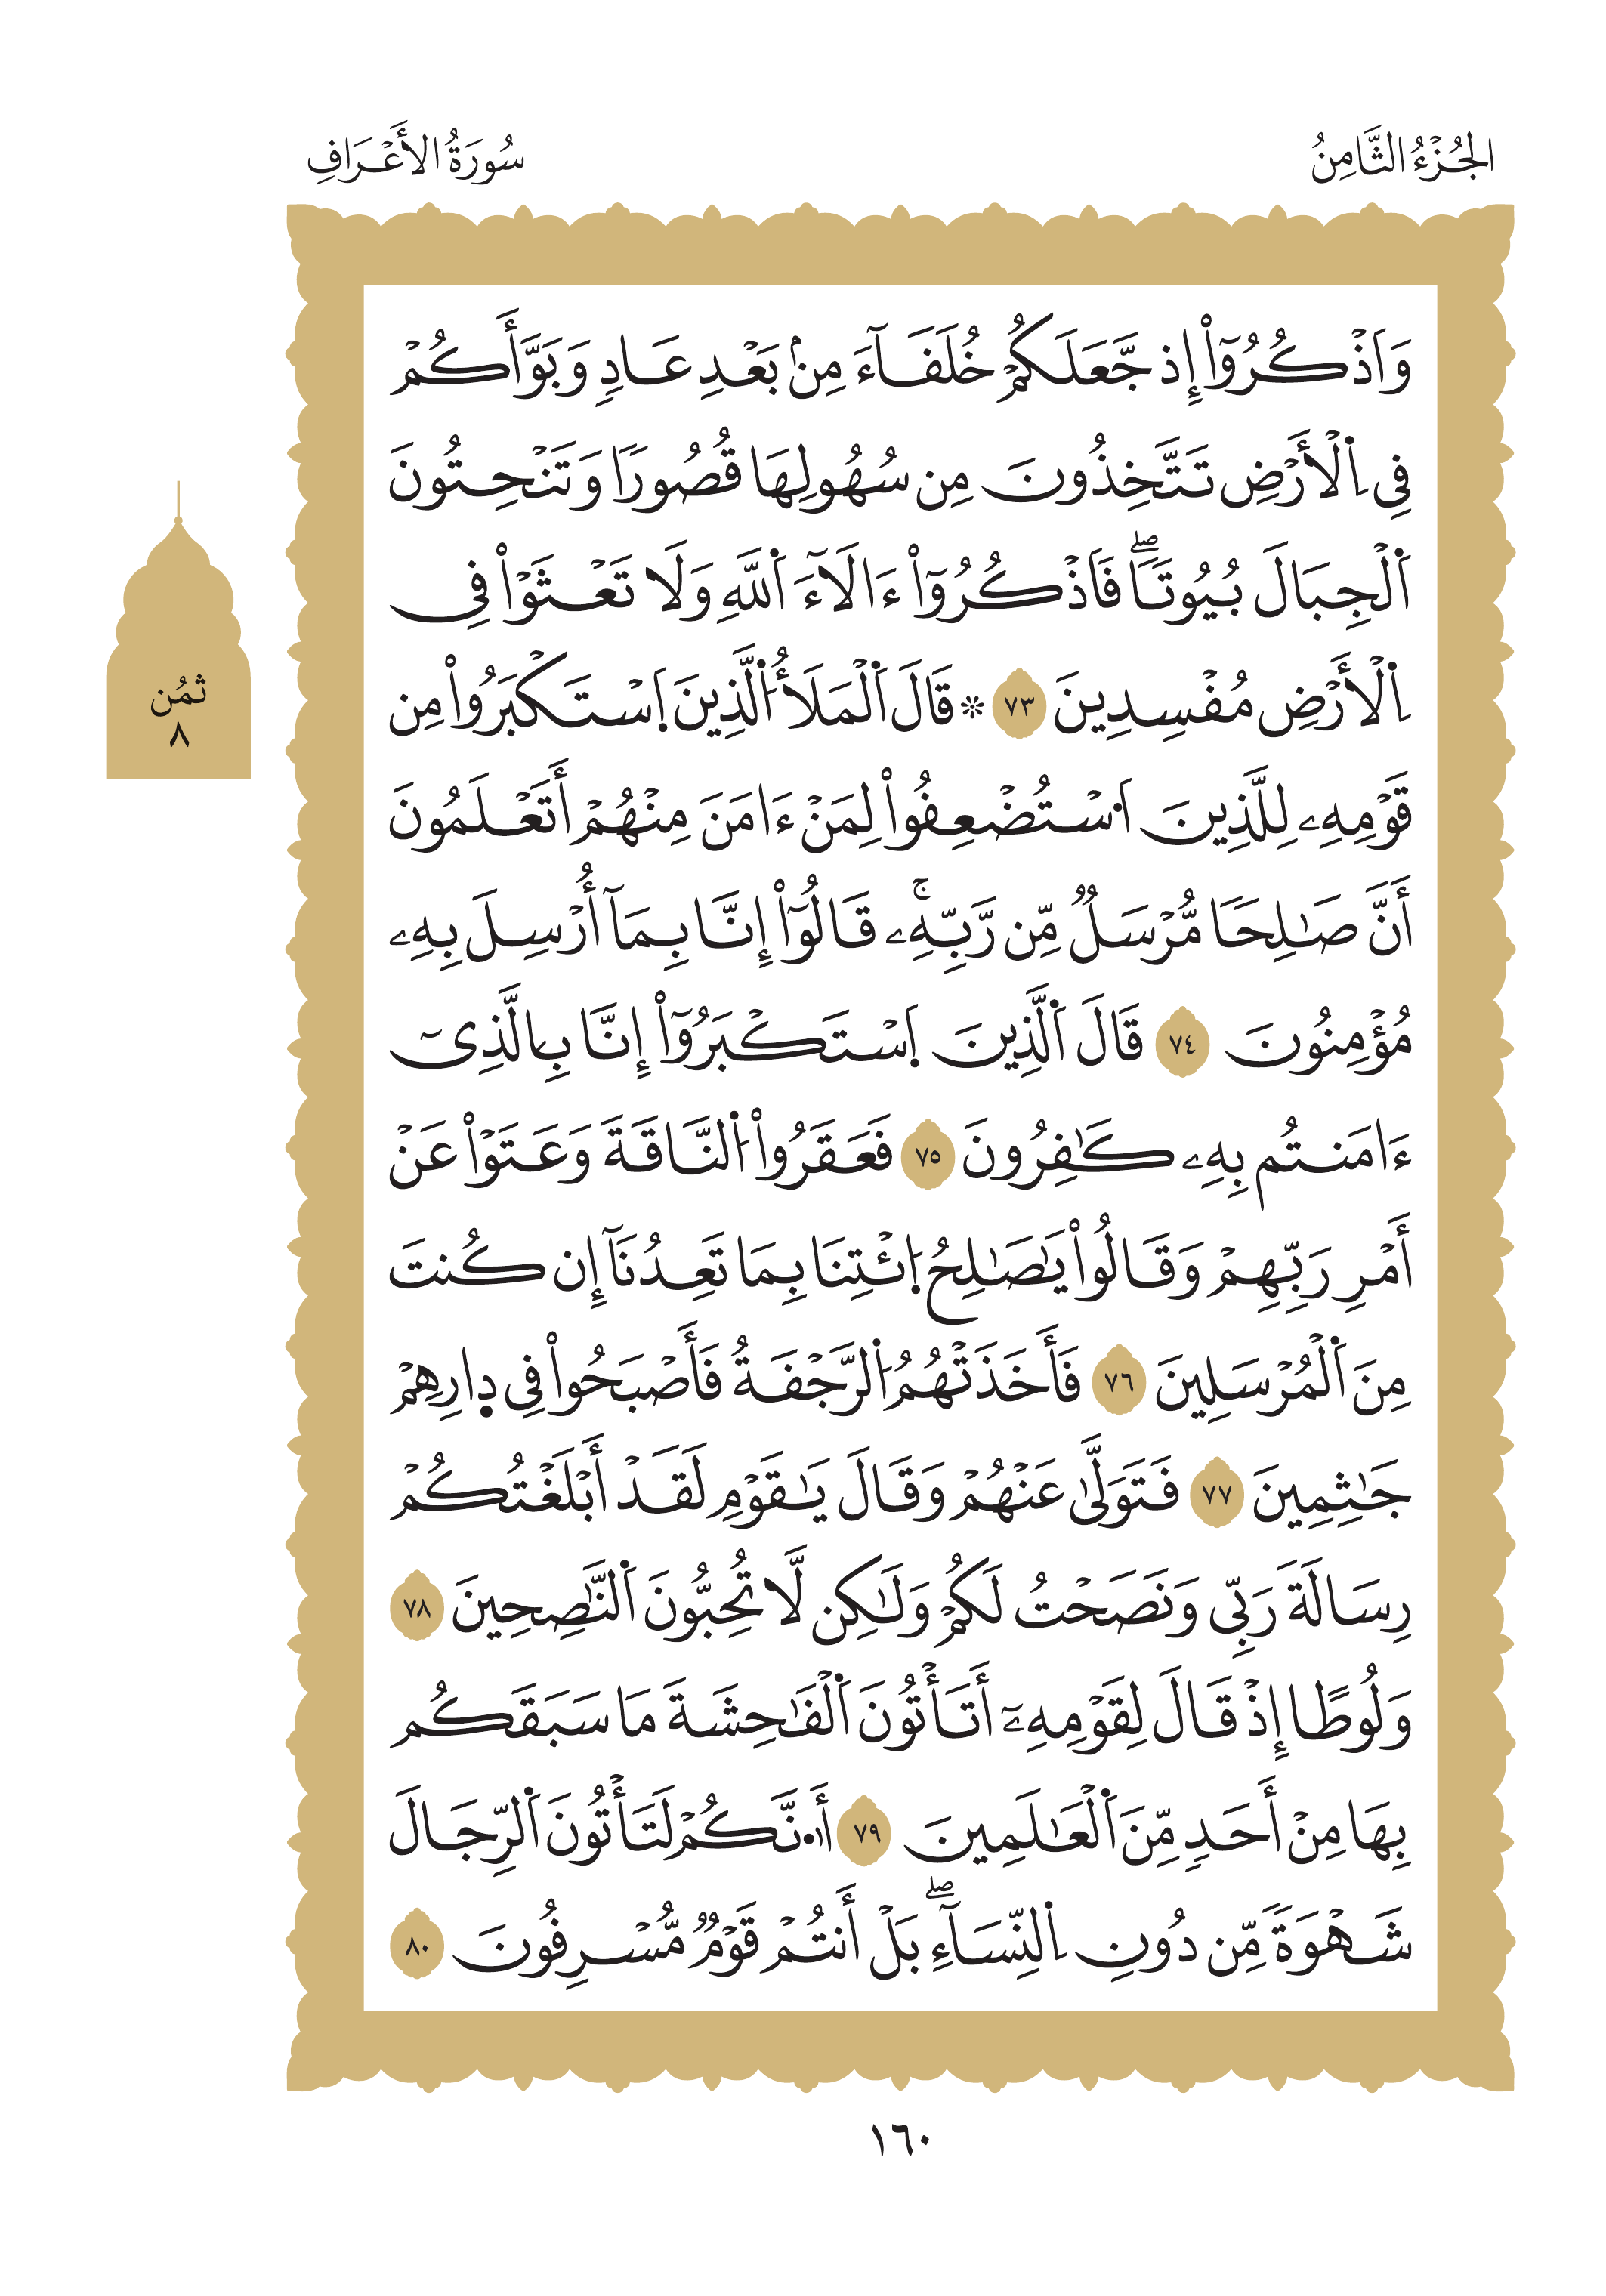 الجُزْءُ الثَّامِنُ
سُورَةُ الأَعْرَافِ
وَاَذْكُرُوٓاْ إِذ جَّعَلَكُمْ خُلَفَآءَ مِنۢ بَعْدِ عَادٖ وَبَوَّأَكُمْ
فِي اِ۬لْأَرْضِ تَتَّخِذُونَ مِن سُهُولِهَا قُصُورٗا وَتَنْحِتُونَ
اَ۬لْجِبَالَ بُيُوتٗاۖ فَاَذْكُرُوٓاْ ءَالَآءَ اَ۬للَّهِ وَلَا تَعْثَوْاْ فِي
اِ۬لْأَرْضِ مُفْسِدِينَ ٧٣ ۞ قَالَ اَ۬لْمَلَأُ اَ۬لَّذِينَ اَ۪سْتَكْبَرُواْ مِن
قَوْمِهِۦ لِلَّذِينَ اَ۟سْتُضْعِفُواْ لِمَنْ ءَامَنَ مِنْهُمْ أَتَعْلَمُونَ
أَنَّ صَٰلِحٗا مُّرْسَلٞ مِّن رَّبِّهِۦۚ قَالُوٓاْ إِنَّا بِمَآ أُرْسِلَ بِهِۦ
مُؤْمِنُونَ ٧٤ قَالَ اَ۬لَّذِينَ اَ۪سْتَكْبَرُوٓاْ إِنَّا بِالَّذِيٓ
ءَامَنتُم بِهِۦ كَٰفِرُونَ ٧٥ فَعَقَرُواْ اُ۬لنَّاقَةَ وَعَتَوْاْ عَنْ
أَمْرِ رَبِّهِمْ وَقَالُواْ يَٰصَٰلِحُ اُ۪ئْتِنَا بِمَا تَعِدُنَآ إِن كُنتَ
مِنَ اَ۬لْمُرْسَلِينَ ٧٦ فَأَخَذَتْهُمُ اُ۬لرَّجْفَةُ فَأَصْبَحُواْ فِي دِ۪ارِهِمْ
جَٰثِمِينَ ٧٧ فَتَوَلَّىٰ عَنْهُمْ وَقَالَ يَٰقَوْمِ لَقَدْ أَبْلَغْتُكُمْ
رِسَالَةَ رَبِّي وَنَصَحْتُ لَكُمْ وَلَٰكِن لَّا تُحِبُّونَ اَ۬لنَّٰصِحِينَ ٧٨
وَلُوطًا إِذْ قَالَ لِقَوْمِهِۦٓ أَتَأْتُونَ اَ۬لْفَٰحِشَةَ مَا سَبَقَكُم
بِهَا مِنْ أَحَدٖ مِّنَ اَ۬لْعَٰلَمِينَ ٧٩ أَا۟نَّكُمْ لَتَأْتُونَ اَ۬لرِّجَالَ
شَهْوَةٗ مِّن دُونِ اِ۬لنِّسَآءِۖ بَلْ أَنتُمْ قَوْمٞ مُّسْرِفُونَ ٨٠
ثُمُن
٨
١٦٠